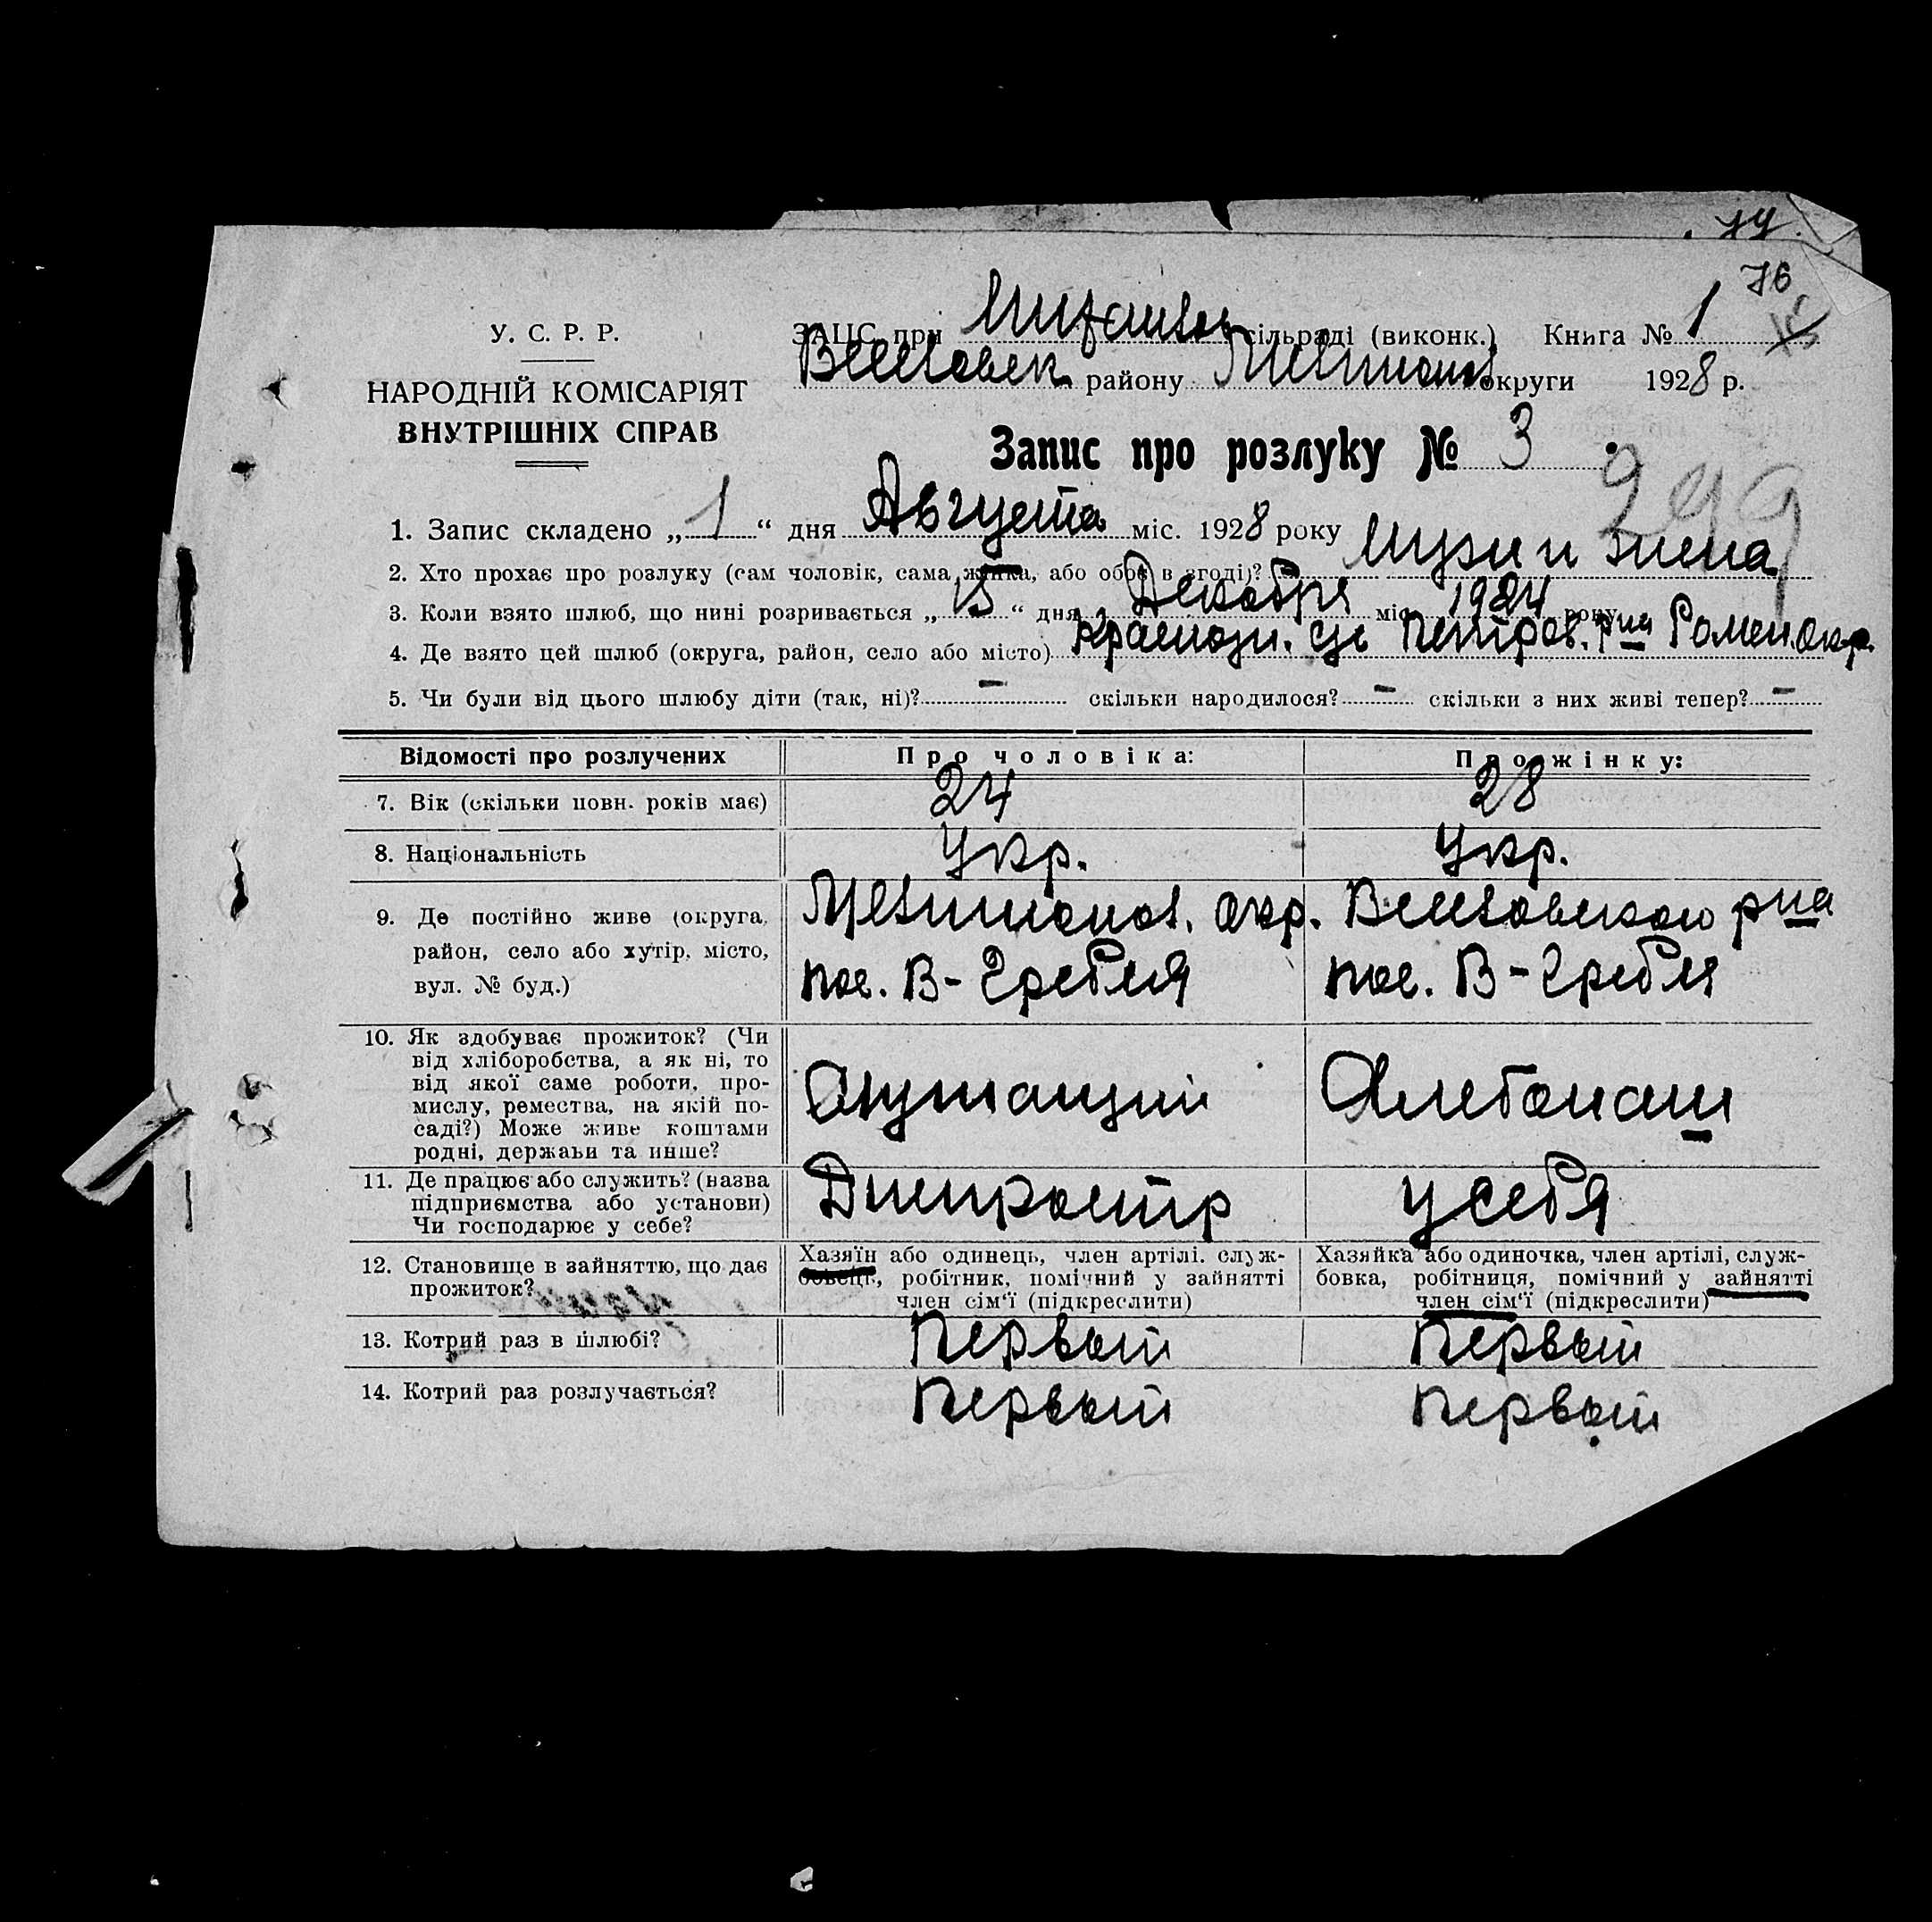 79
76
У. С. Р. Р.
НАРОДНІЙ КОМІСАРІЯТ
ВНУТРІШНІХ СПРАВ
ЗАЦС при сільраді (виконк.) Книга № 1
району округи 1928 р.
Запис про розлуку № 3
299
1. Запис складено „ 1 “ дня Августа міс. 1928 року
2. Хто прохає про розлуку (сам чоловік, сама жінка, або обоє в згоді)? Муж и жена
3. Коли взято шлюб, що нині розривається „ 15 “ дня Декабря міс. 1924 року
4. Де взято цей шлюб (округа, район, село або місто) Петров. р-на Ромен. окр.
5. Чи були від цього шлюбу діти (так, ні)? — скільки народилося? — скільки з них живі тепер? —
Відомості про розлучених Про чоловіка: Про жінку:
7. Вік (скільки повн. років має) 24 28
8. Національкість Укр. Укр.
9. Де постійно живе (округа, район, село або хутір, місто, вул. № буд.) окр. р-на
пос. В-Гребля пос. В-Гребля
10. Як здобуває прожиток? (Чи
від хліборобства, а як ні, то
від якої саме роботи, про-
мислу, ремества, на якій по-
саді?) Може живе коштами
родні, держави та инше?
Служащий Хлебопаш
11. Де працює або служить? (назва
підприємства або установи)
Чи господарює у себе?
Днепростр у себя
12. Становище в зайняттю, що дає
прожиток?
Хазяїн або одинець, член артілі, служ-
бовець, робітник, помічний у зайнятті
член сім'ї (підкреслити)
Хазяйка або одиночка, член артілі, служ-
бовка, робітниця, помічний у зайнятті
член сім'ї (підкреслити)
13. Котрий раз в шлюбі? Первый Первый
14. Котрий раз розлучається? Первый Первый